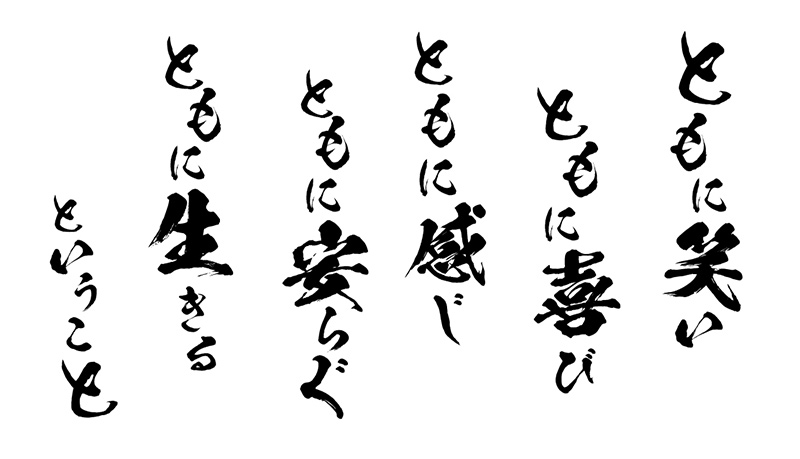 ともに笑い
ともに喜び
ともに感じ
ともに安らぐ
ともに生きる
ということ